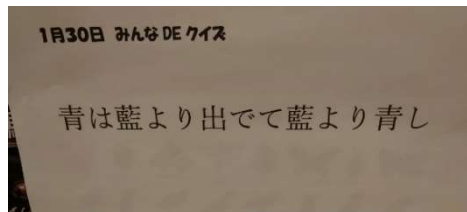 1月30日 みんな DE クイズ
青は藍より出でて藍より青し